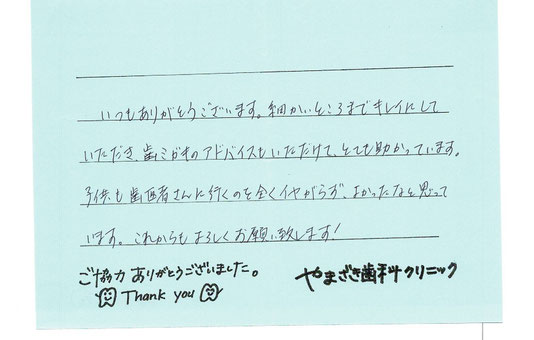 いつもありがとうございます。細かいところまでキレイにして
いただき、歯ミガキのアドバイスもいただけて、とても助かっています。
子供も歯医者さんに行くのを全くイヤがらず、よかったなと思って
います。これからもよろしくお願い致します！
ご協力ありがとうございました。
やまざき歯科クリニック
Thank you